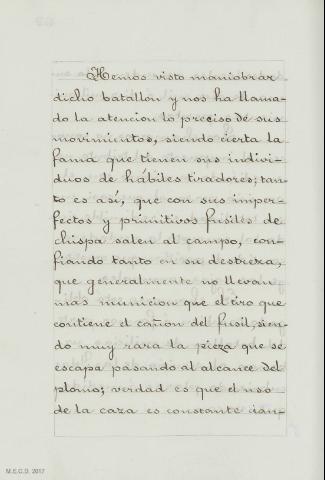 Hemos visto maniobrar
dicho batallon y nos ha llama-
do la atencion lo preciso de sus
movimientos, siendo cierta la
fama que tienen sus indivi-
duos de hábiles tiradores; tan-
to es así, que con sus imper-
fectos y primitivos fusiles de
chispa salen al campo, con-
fiando tanto en su destreza,
que generalmente no llevan
mas municion que el tiro que
contiene el cañon del fusil, sien-
do muy rara la pieza que se
escapa pasando al alcance del
plomo; verdad es que el uso
de la caza es constante
M.E.C.D. 2017